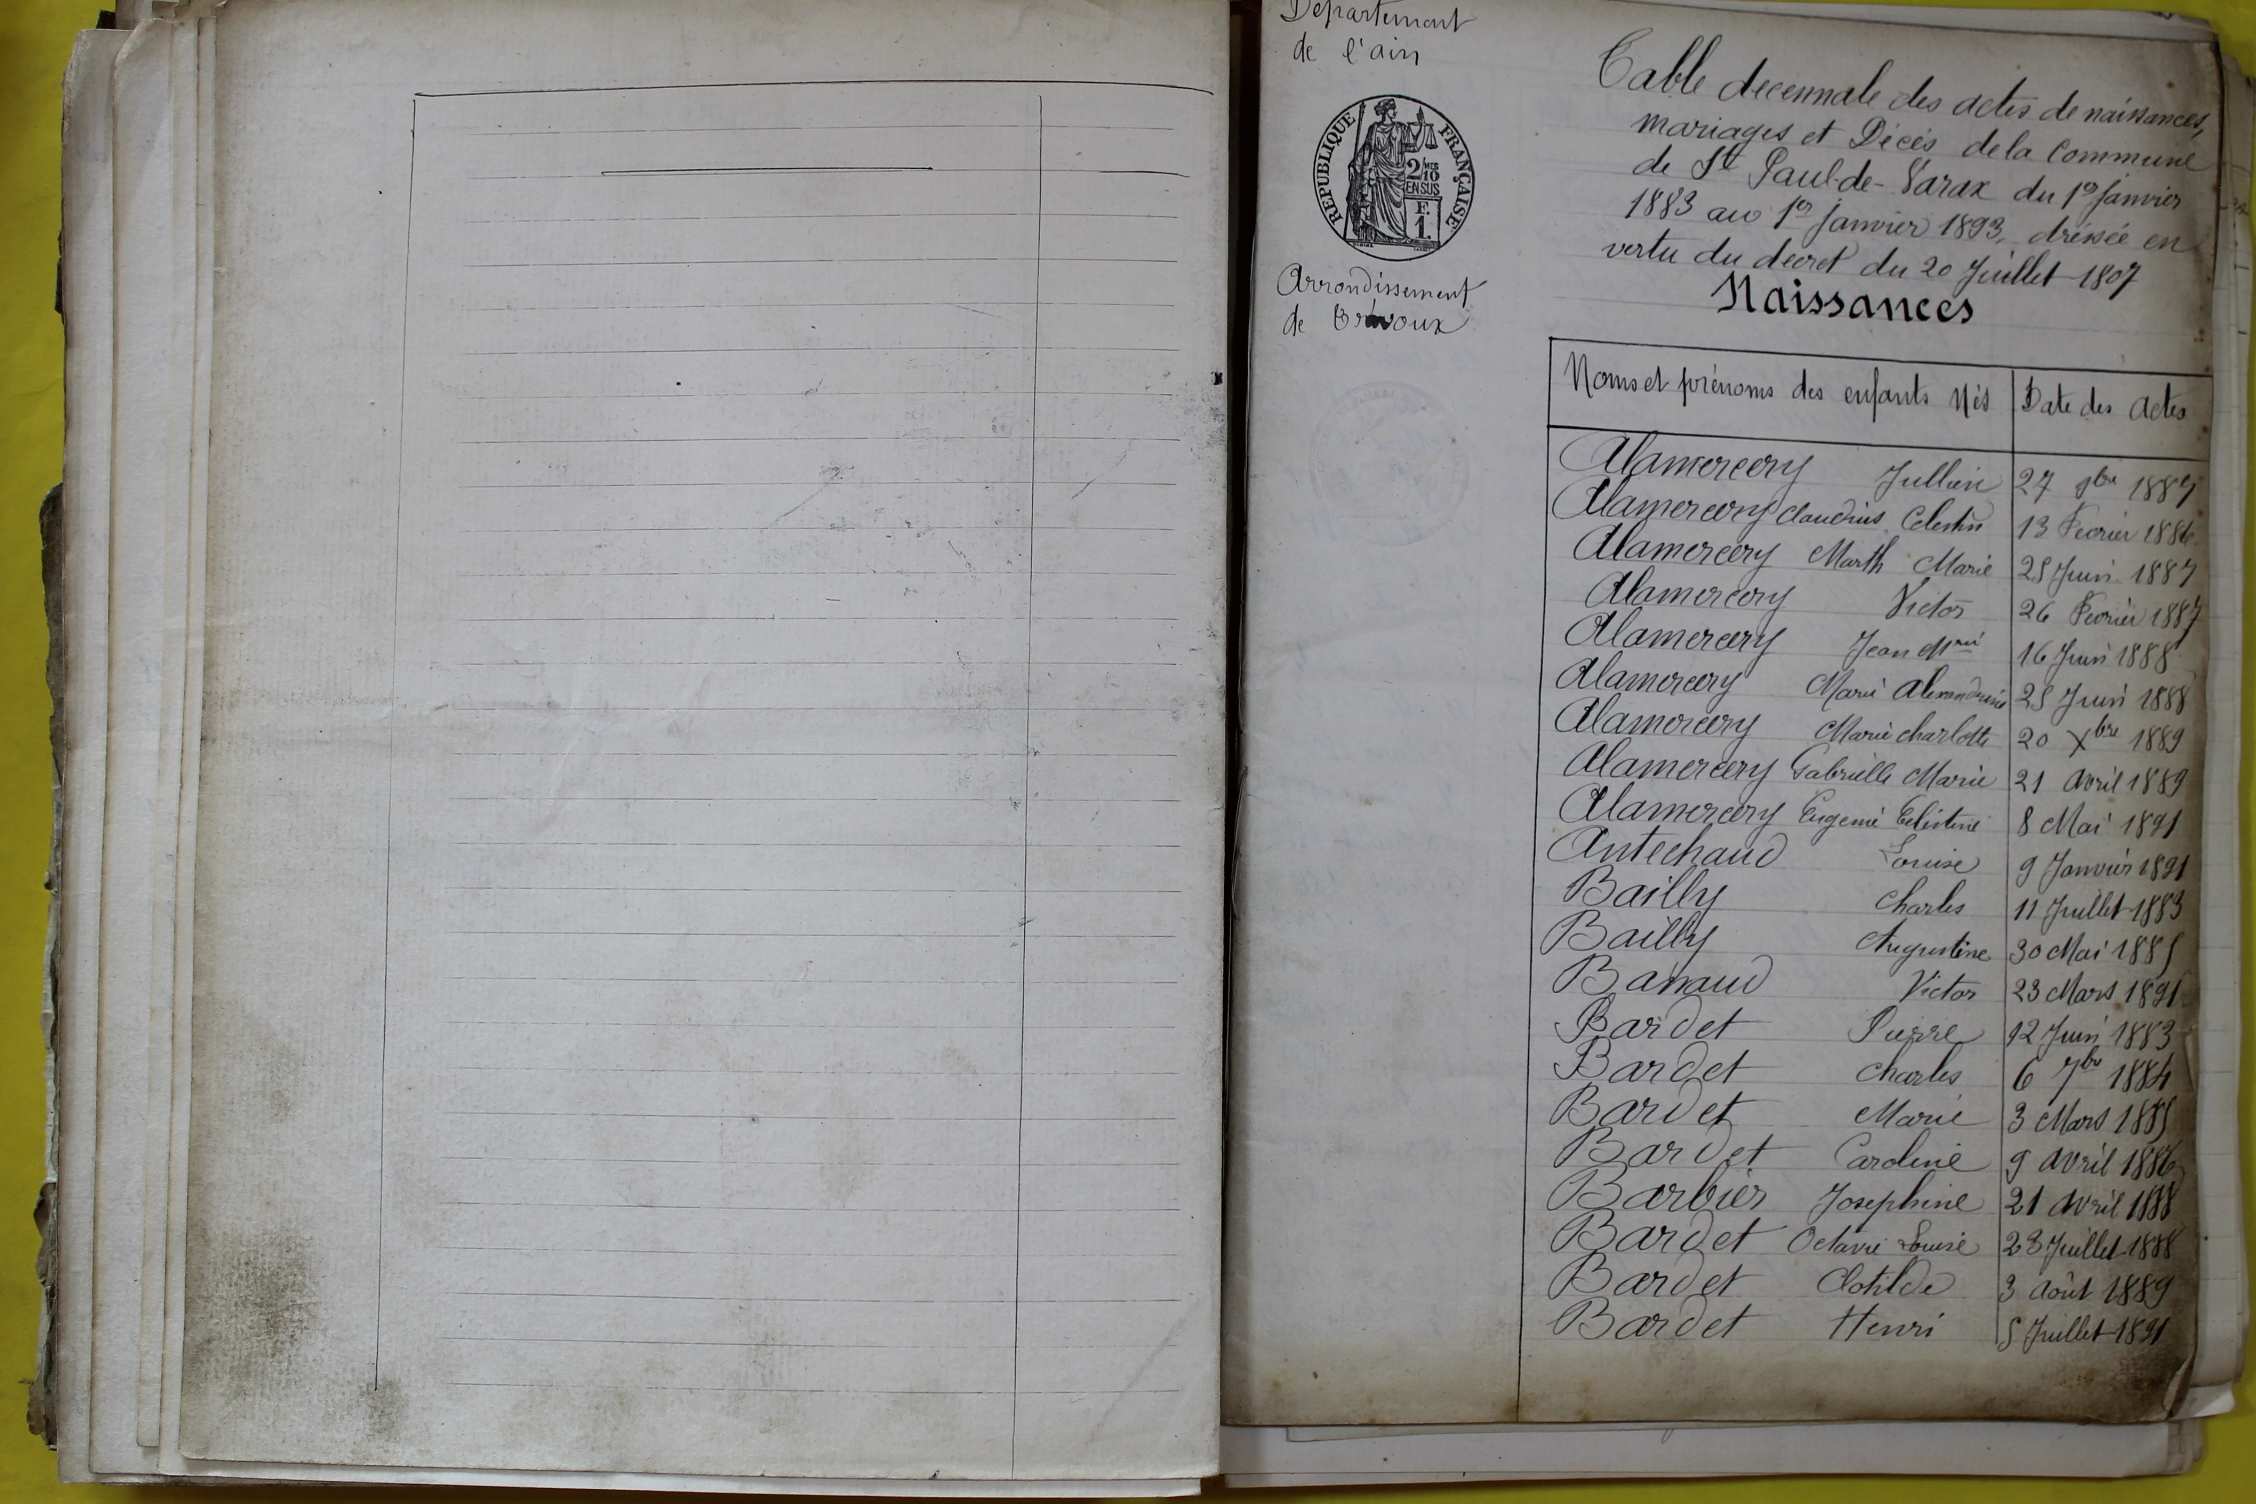 Departement
de l'ain
REPUBLIQUE FRANÇAISE
2/10 MES
EN SUS
F.
1.
Arrondissement
de Trévoux
Table decennale des actes de naissances,
mariages et Décès de la Commune
de St Paul-de-Varax du 1er Janvier
1883 au 1er Janvier 1893, dréssée en
vertu du decret du 20 Juillet 1807
Naissances
Noms et prénoms des enfants Nés Date des Actes
Alamercery Jullien 27 9bre
Alamercery Claudius Celestin 13 Fevrier 1886
Alamercery Marth Marie 25 Juin 1887
Alamercery Victor 26 Fevrier 1887
Alamercery Jean Mrie 16 Juin 1888
Alamercery Marie Alexandrine 25 Juin 1888
Alamercery Marie Charlotte 20 Xbre 1889
Alamercery Gabrielle Marie 21 Avril 1889
Alamercery Eugenie Celestine 8 Mai 1891
Antechaud Louise 9 Janvier 1891
Bailly Charles 11 Juillet 1883
Bailly Augustine 30 Mai 1885
Victor 23 Mars 1891
Bardet Pierre 12 Juin 1883
Bardet Charles 6 7bre 1884
Bardet Marie 3 Mars 1885
Bardet Caroline 9 Avril 1886
Barbier Josephine 21 Avril 1888
Bardet Octavie Louise 23 Juillet 1888
Bardet Clotilde 3 Août 1889
Bardet Henri 5 Juillet 1891